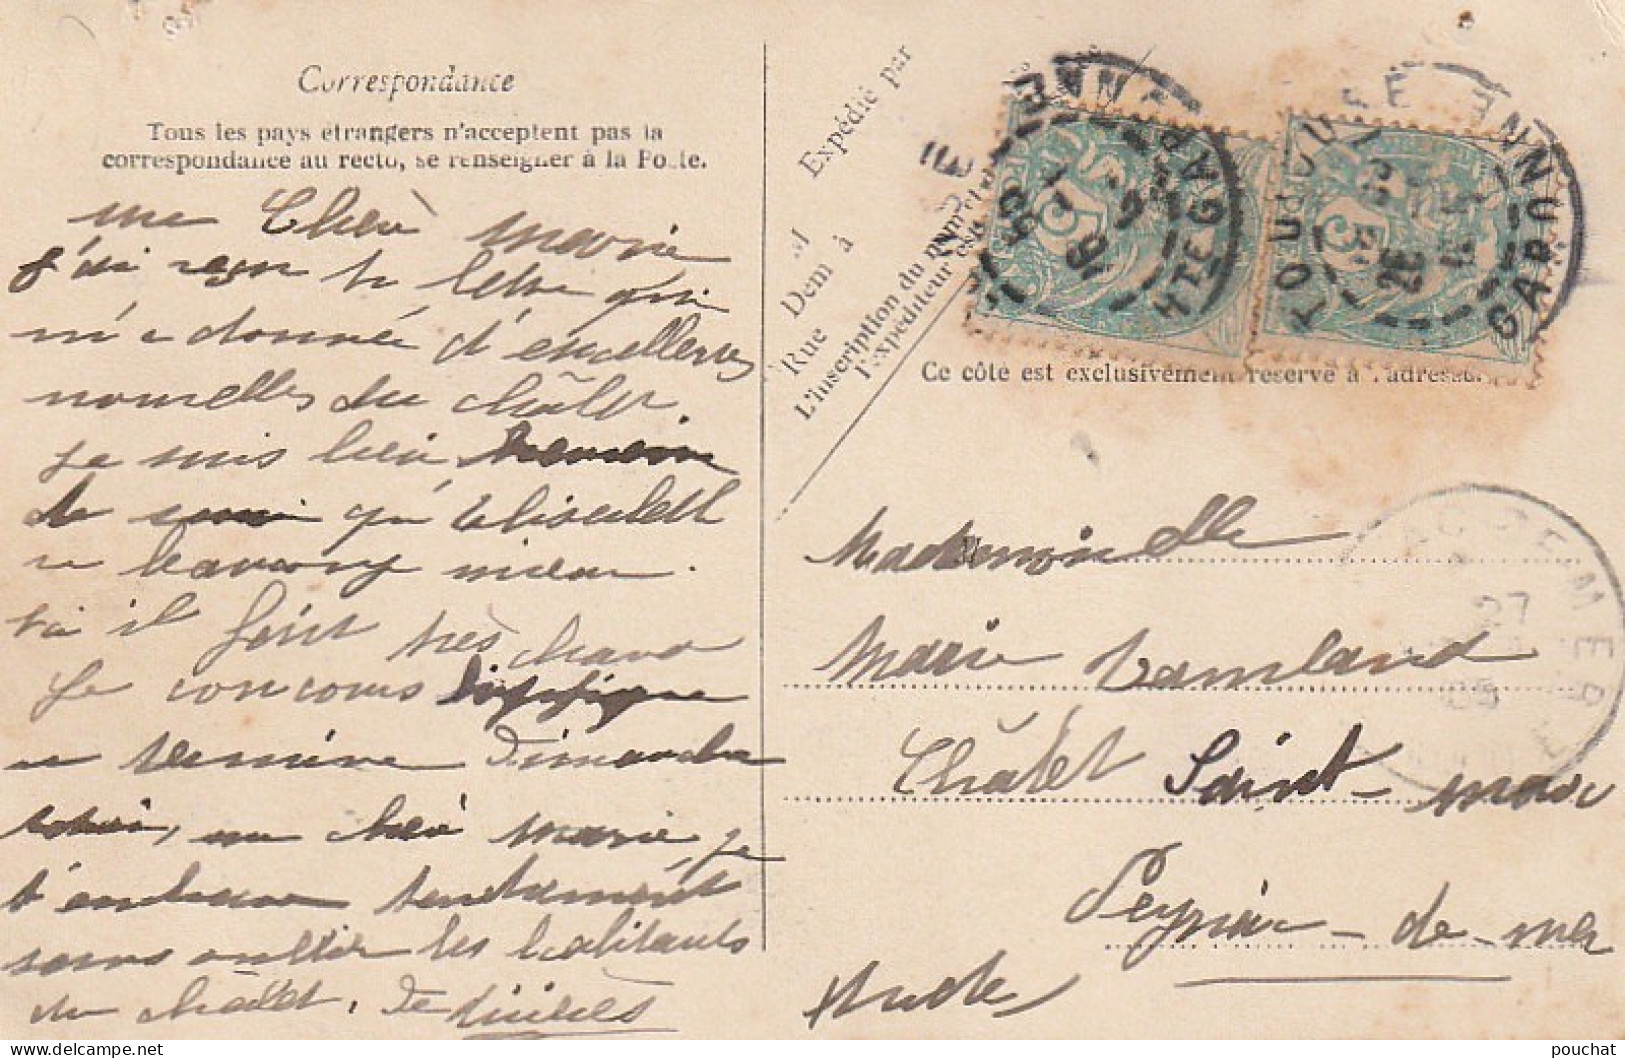 Correspondance
Tous les pays étrangers n'acceptent pas la
correspondance au recto, se renseigner à la Poste.
ma Chère Marie
j'ai reçu ta lettre qui
m'a donné d'excellentes
nouvelles du châlet
je suis bien
de qu'Elisabeth
va beaucoup mieux.
ici il fait très chaud
Le concours hippique
se termine Dimanche
soir, ma chère Marie, je
t'embrasse tendrement
sans oublier les habitants
du châlet.
Expédié par
M
Dem à
Rue
L'inscription du nom et de
l'expéditeur est
Ce côté est exclusivement réservé à l'adresse.
TOULOUSE
HTE GARONNE
5
26
TOULOUSE
GARONNE
5
27
05
Mademoiselle
Marie
Châlet Saint-marc
Peyriac-de-mer
Aude
pouchat